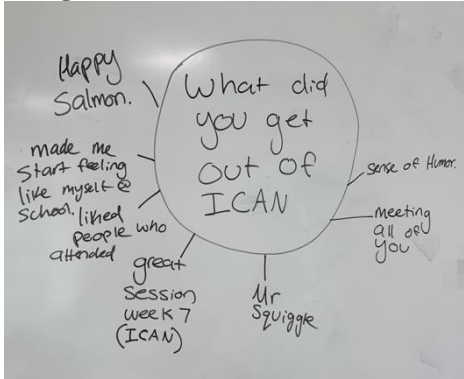 What did
you get
out of
ICAN
Happy
Salmon.
made me
start feeling
like myself @
school.
liked
people who
attended
great
session
week 7
(ICAN)
Mr
Squiggle
meeting
all of
you
sense of Humor.